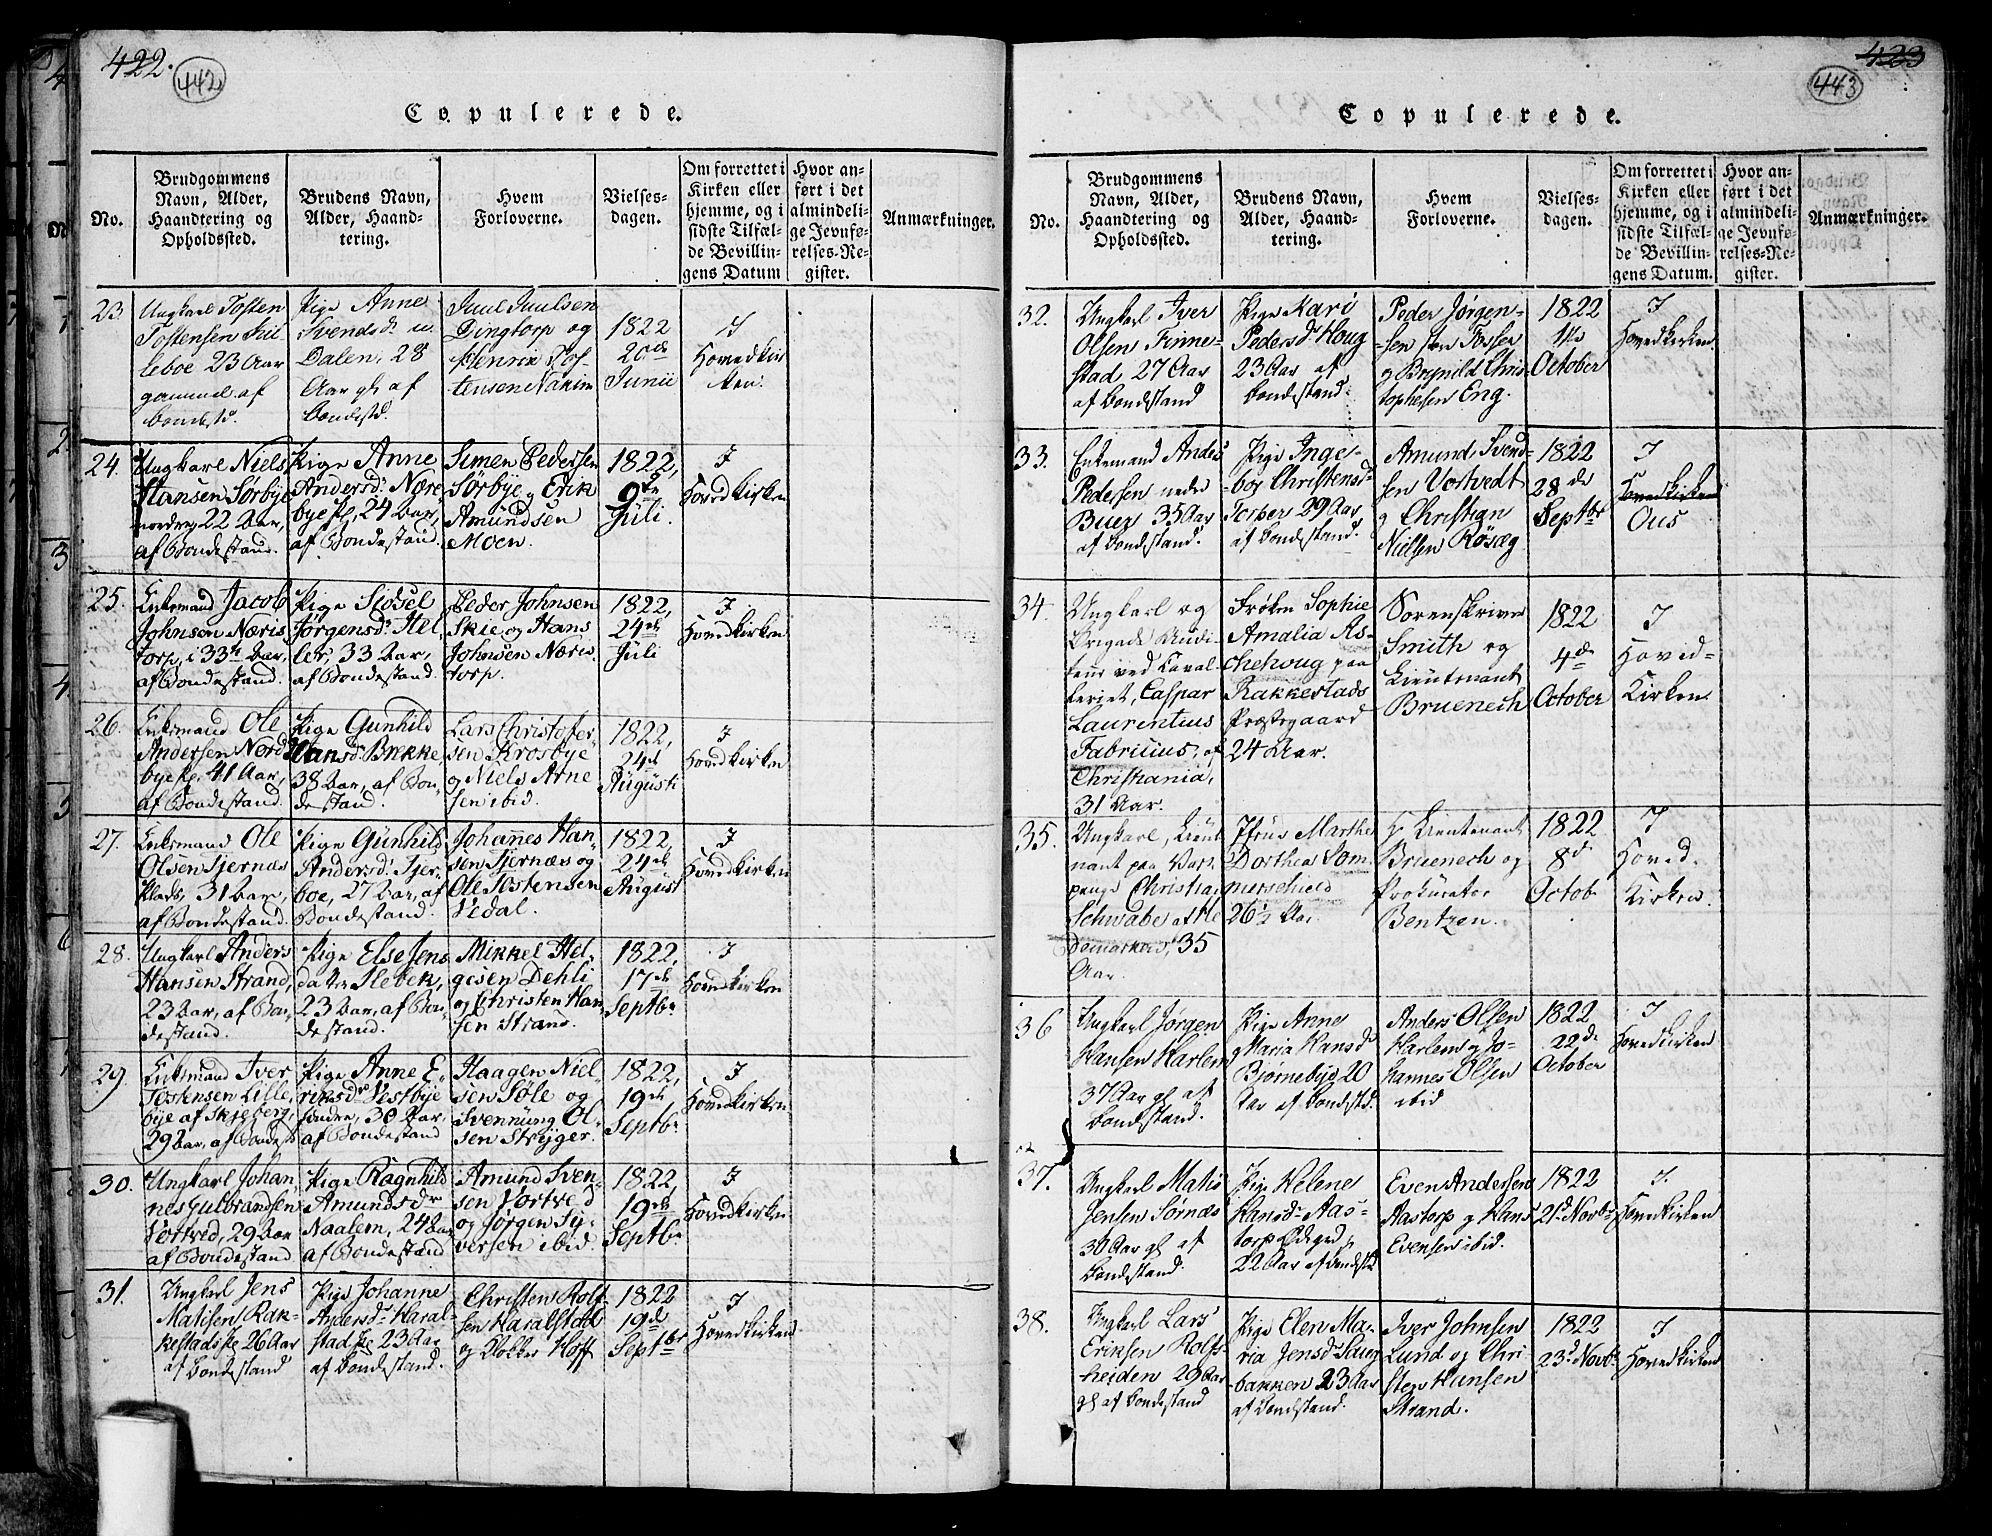 422.
442
Copulerede.
No.
Brudgommens
Navn, Alder,
Haandtering og
Opholdssted.
Brudens Navn,
Alder, Haand-
tering.
Hvem
Forloverne.
Vielses-
dagen.
Om forrettet i
Kirken eller
hjemme, og i
sidste Tilfæl-
de Bevillin-
gens Datum
Hvor an-
ført i det
almindeli-
ge Jevnfø-
relses-Re-
gister.
Anmærkninger.
23.
Ungkarl Tosten
Tostensen
leboe 23 Aar
gammel af
bondestd.
Pige Anne
Svendsd.
Dalen, 28
Aar gl af
bondestd.
Poul Poulsen
Dingtorp og
Henrik Tos-
tensen Nakim
1822
20de
Junii
I
Hovedkir
ken.
24.
Ungkarl Niels
Hansen Sørbye
nordre, 22 Aar,
af Bondestand.
Pige Anne
Andersd. Nøre
bye, 24 Aar,
af Bondestand.
Simen Pedersen
Sørbye, Erik
Amundsen
Moen.
1822,
9de
Juli.
I
Hovedkirken
25.
Enkemand Jacob
Johnson Næris
torp, i 33te Aar,
af Bondestand.
Pige Sidsel
Jørgensd. Hel
ler, 33 Aar,
af Bondestand.
Peder Johnsen
Skie og Hans
Johnsen Næris
torp.
1822,
24de
Juli
I
Hovedkirken
26.
Enkemand Ole
Andersen Nord
bye, 41 Aar,
af Bondestand.
Pige Gunhild
Hansd. Brekke
38 Aar, af Bon
destand.
Lars Christofer
sen Krosbye
og Niels Arne
sen ibid.
1822,
24de
Augusti
I
Hovedkirken
27.
Enkemand Ole
Olsen Tjernæs
Plads, 31 Aar,
af Bondestand.
Pige Gunhild
Andersd. Tjer
boe, 27 Aar, af
Bondestand.
Johannes Han
sen Tjernæs og
Ole Tostensen
Vedal.
1822,
24de
August
I
Hovedkirken
28.
Ungkarl Anders
Hansen Strand,
23 Aar, af Bon
destand.
Pige Else Jens
datter Slebek,
23 Aar, af Bon
destand.
Mikkel Hel-
gesen Dehli
og Christen Han
sen Strand.
1822,
17de
Septbr
I
Hovedkirken
29.
Enkemand Iver
Tostensen Lille
bye af Skjeberg,
29 Aar, af Bondest
Pige Anne E-
riksdr Vestbye
søndre, 30 Aar,
af Bondestand
Haagen Niel-
sen Søle og
Svennung Ol-
sen Stryger.
1822,
19de
Septbr
I
Hovedkirken
30.
Ungkarl Johan
nes Gulbrandsen
Vortved, 29 Aar
af Bondestand
Pige Ragnhild
Amundsdr
Naalem, 24 Aar
af Bondestand
Amund Sven
sen Vortved
og Jørgen Sy-
versen ibid.
1822
19de
Septbr
I
Hovedkirken
31.
Ungkarl Jens
Matisen Rak-
kestad 26 Aar
af bondestand
Pige Johanne
Andersd. Haral-
stad 23 Aar
af bondestand.
Christen Rolf
sen Haralstad
og Klokker Hoff
1822
19d
Septbr
I
Hovedkirken.
423
443
Copulerede.
No.
Brudgommens
Navn, Alder,
Haandtering og
Opholdssted.
Brudens Navn,
Alder, Haand-
tering.
Hvem
Forloverne.
Vielses-
dagen.
Om forrettet i
Kirken eller
hjemme, og i
sidste Tilfæl-
de Bevillin-
gens Datum.
Hvor an-
ført i det
almindeli-
ge Jevnfø-
relses-Re-
gister.
Anmærkninger.
32.
Ungkarl Iver
Olsen Finne-
stad 27 Aar
af bondestand
Pige Kari
Pedersd. Houg
23 Aar af
bondestand.
Peder Jørgen-
sen Fosser
og Brynild Chris
tophersen Eng.
1822
October
I
Hovedkirken.
33.
Enkemand Anders
Pedersen nedre
Buer 35 Aar
af bondestand.
Pige Inge-
bor Christensd
Torper 29 Aar
af bondestand.
Amund Svend-
sen Vortvedt
og Christian
Nielsen Røsæg
1822
28de
Septbr
I
Hovedkirken
Ous
34.
Ungkarl og
Brigade Audi
teur ved Caval
leriet, Caspar
Laurentius
Fabricius, af
Christiania,
31 Aar.
Frøken Sophie
Amalia As-
chehoug paa
Rakkestads
Præstegaard
24 Aar.
Sorenskriver
Smith og
Lieutenant
Bruenech
1822
4de
October
I
Hoved-
Kirken.
35.
Ungkarl, Lieut
nant paa Vart
penge Christian
Schwabe
Aar.
Jfru Marthe
Dorthea Som
merschield
26½ Aar.
Hr Lieutenant
Bruenech og
Prokurator
Bentzen.
1822
8de
Octob
I
Hoved.
Kirken.
36
Ungkarl Jørgen
Hansen Harlem
37 Aar gl af
bondestand.
Pige Anne
Maria Hansd
Bjørnebye 20
Aar af bondestd.
Anders Olsen
Harlem og Jo-
hannes Olsen
ibid
1822
22de
October
I
Hovedkirken
37.
Ungkarl Matis
Jensen Sørnæs
30 Aar gl af
bondestand.
Pige Helene
Hansd. Aas-
torp Ødegrd,
22 Aar af bondestd
Even Andersen
Aastorp og Hans
Evensen ibid.
1822
21d Novbr
I
Hovedkirken
38.
Ungkarl Lars
Eriksen Rolfs-
heiden 29 Aar
gl af bondestand
Pige Elen Ma-
ria Jensd. Haug
bakken 23 Aar
af bondestand.
Iver Johnsen
Lund og Chri-
sten Hansen
Strand.
1822
23d Novbr
I
Hovedkirken